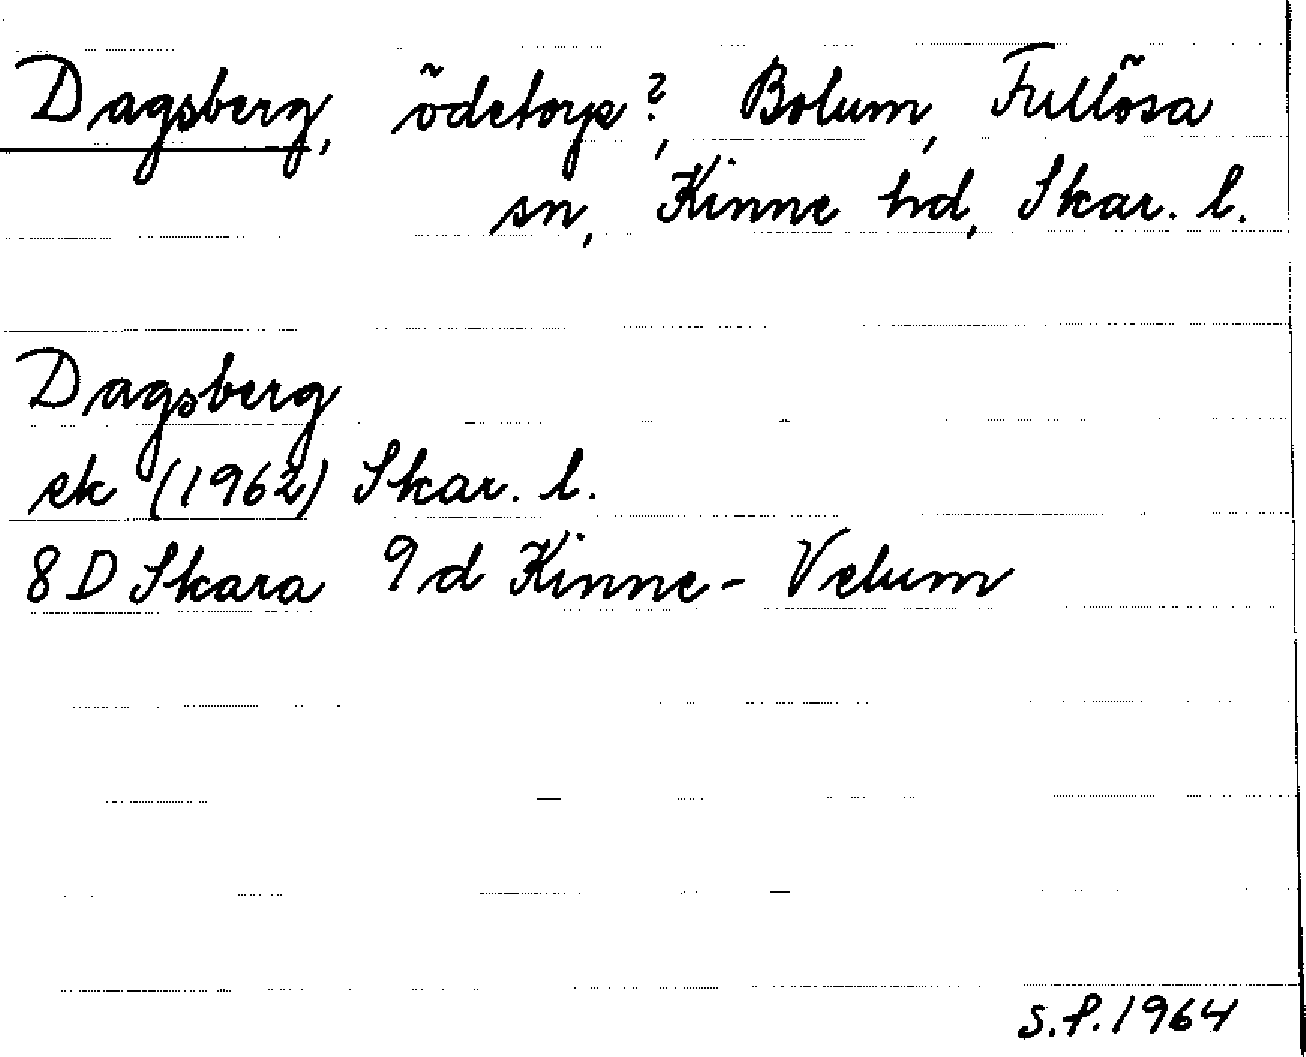 Dagsberg, ödetorp?, Bolum, Fullösa
sn, Kinne hd, Skar. l.
Dagsberg
ek (1962) Skar. l.
8 D Skara 9 d Kinne-Velum
S.F. 1964